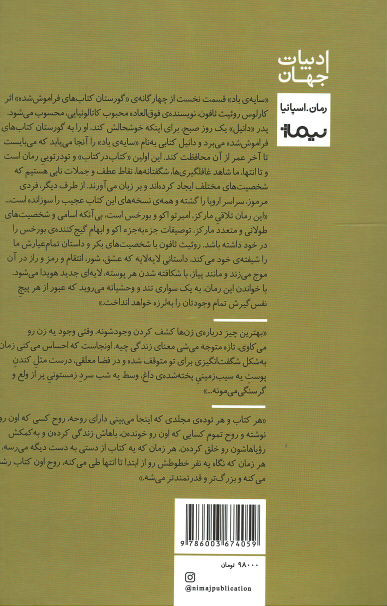 ادبیات
جهان
رمان.اسپانیا
نیماژ
«سایه‌ی باد» قسمت نخست از چهارگانه‌ی «گورستان کتاب‌های فراموش‌شده» اثر
کارلوس روئیث ثافون، نویسنده‌ی فوق‌العاده محبوب کاتالونیایی، محسوب می‌شود.
پدر «دانیل» یک روز صبح، برای اینکه خوشحالش کند، او را به گورستان کتاب‌های
فراموش‌شده می‌برد و دانیل کتابی به‌نام «سایه‌ی باد» را آنجا می‌یابد که می‌بایست
تا آخر عمر از آن محافظت کند. این اولین «کتاب‌درکتاب» و تودرتویی رمان است
و تا انتها، ما شاهد غافلگیری‌ها، شگفتانه‌ها، نقاط عطف و جملات نابی هستیم که
شخصیت‌های مختلف ایجاد کرده‌اند و بر زبان می‌آورند. از طرف دیگر، فردی
مرموز، سراسر اروپا را گشته و همه‌ی نسخه‌های این کتاب عجیب را سوزانده است...
«این رمان تلاقی مارکز، امبرتو اکو و بورخس است، بی‌آنکه اسامی و شخصیت‌های
طولانی و متعدد مارکز، توصیفات جزءبه‌جزء اکو و ابهام گیج‌کننده‌ی بورخس را
در خود داشته باشد. روئیث ثافون با شخصیت‌های بکر و داستان تمام‌عیارش ما
را شیفته‌ی خود می‌کند. داستانی لابه‌لابه که عشق، شور، انتقام و رمز و راز در آن
موج می‌زند و مانند پیاز، با شکافته شدن هر پوسته، لایه‌ای جدید هویدا می‌شود.
با خواندن این رمان، به یک سواری تند و وحشیانه می‌روید که عبور از هر پیچ
نفس‌گیرش تمام وجودتان را به‌لرزه خواهد انداخت.»
«بهترین چیز درباره‌ی زن‌ها کشف کردن وجودشونه. وقتی وجود یه زن رو
می‌کاوی، تازه متوجه می‌شی معنای زندگی چیه. اونجاست که احساس می‌کنی زمان
به‌شکل شگفت‌انگیزی برای تو متوقف شده و در فضا معلقی، درست مثل کندن
پوست یه سیب‌زمینی پخته‌شده‌ی داغ، وسط یه شب سرد زمستونی پر از ولع و
گرسنگی می‌مونه...»
«هر کتاب و هر توده‌ی مجلدی که اینجا می‌بینی دارای روحه، روح کسی که اون رو
نوشته و روح تموم کسایی که اون رو خوندن، باهاش زندگی کردن و به‌کمکش
رؤیاهاشون رو خلق کردن. هر زمان که یه کتاب از دستی به دست دیگه می‌رسه،
هر زمان که نگاه یه نفر خطوطش رو از ابتدا تا انتها طی می‌کنه، روح اون کتاب رشد
می‌کنه و بزرگ‌تر و قدرتمندتر می‌شه.»
9 786003 674059
۹۸۰۰۰ تومان
@nimajpublication